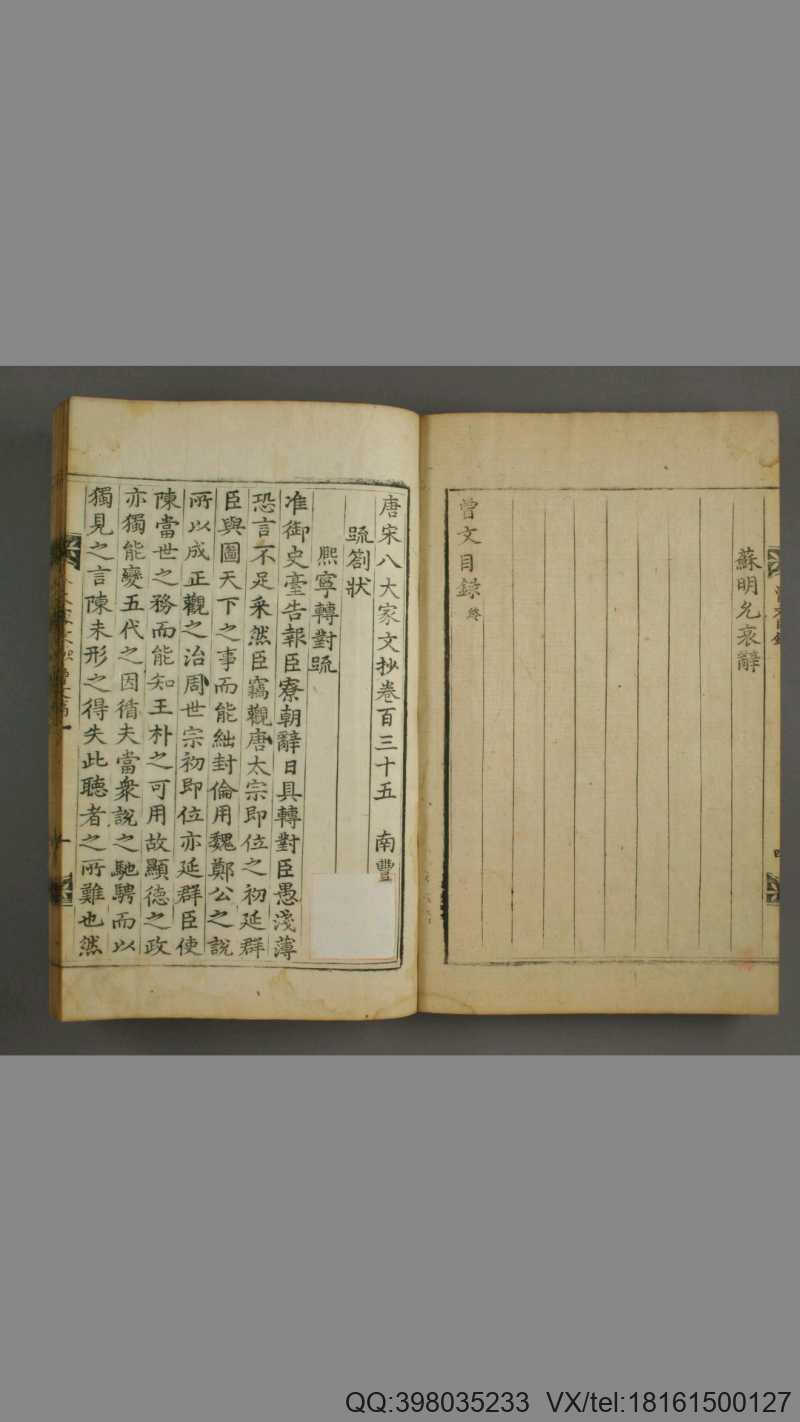 蘇明允哀辭
曾文目錄 終
唐宋八大家文抄卷百三十五 南豐
疏劄狀
熈寧轉對疏
准御史臺告報臣寮朝辭日具轉對臣愚淺薄
恐言不足采然臣竊觀唐太宗即位之初延群
臣與圖天下之事而能絀封倫用魏鄭公之說
所以成正觀之治周世宗初即位亦延群臣使
陳當世之務而能知王朴之可用故顯德之政
亦獨能變五代之因循夫當衆說之馳騁而以
獨見之言陳未形之得失此聽者之所難也然
QQ:398035233 VX/tel:18161500127